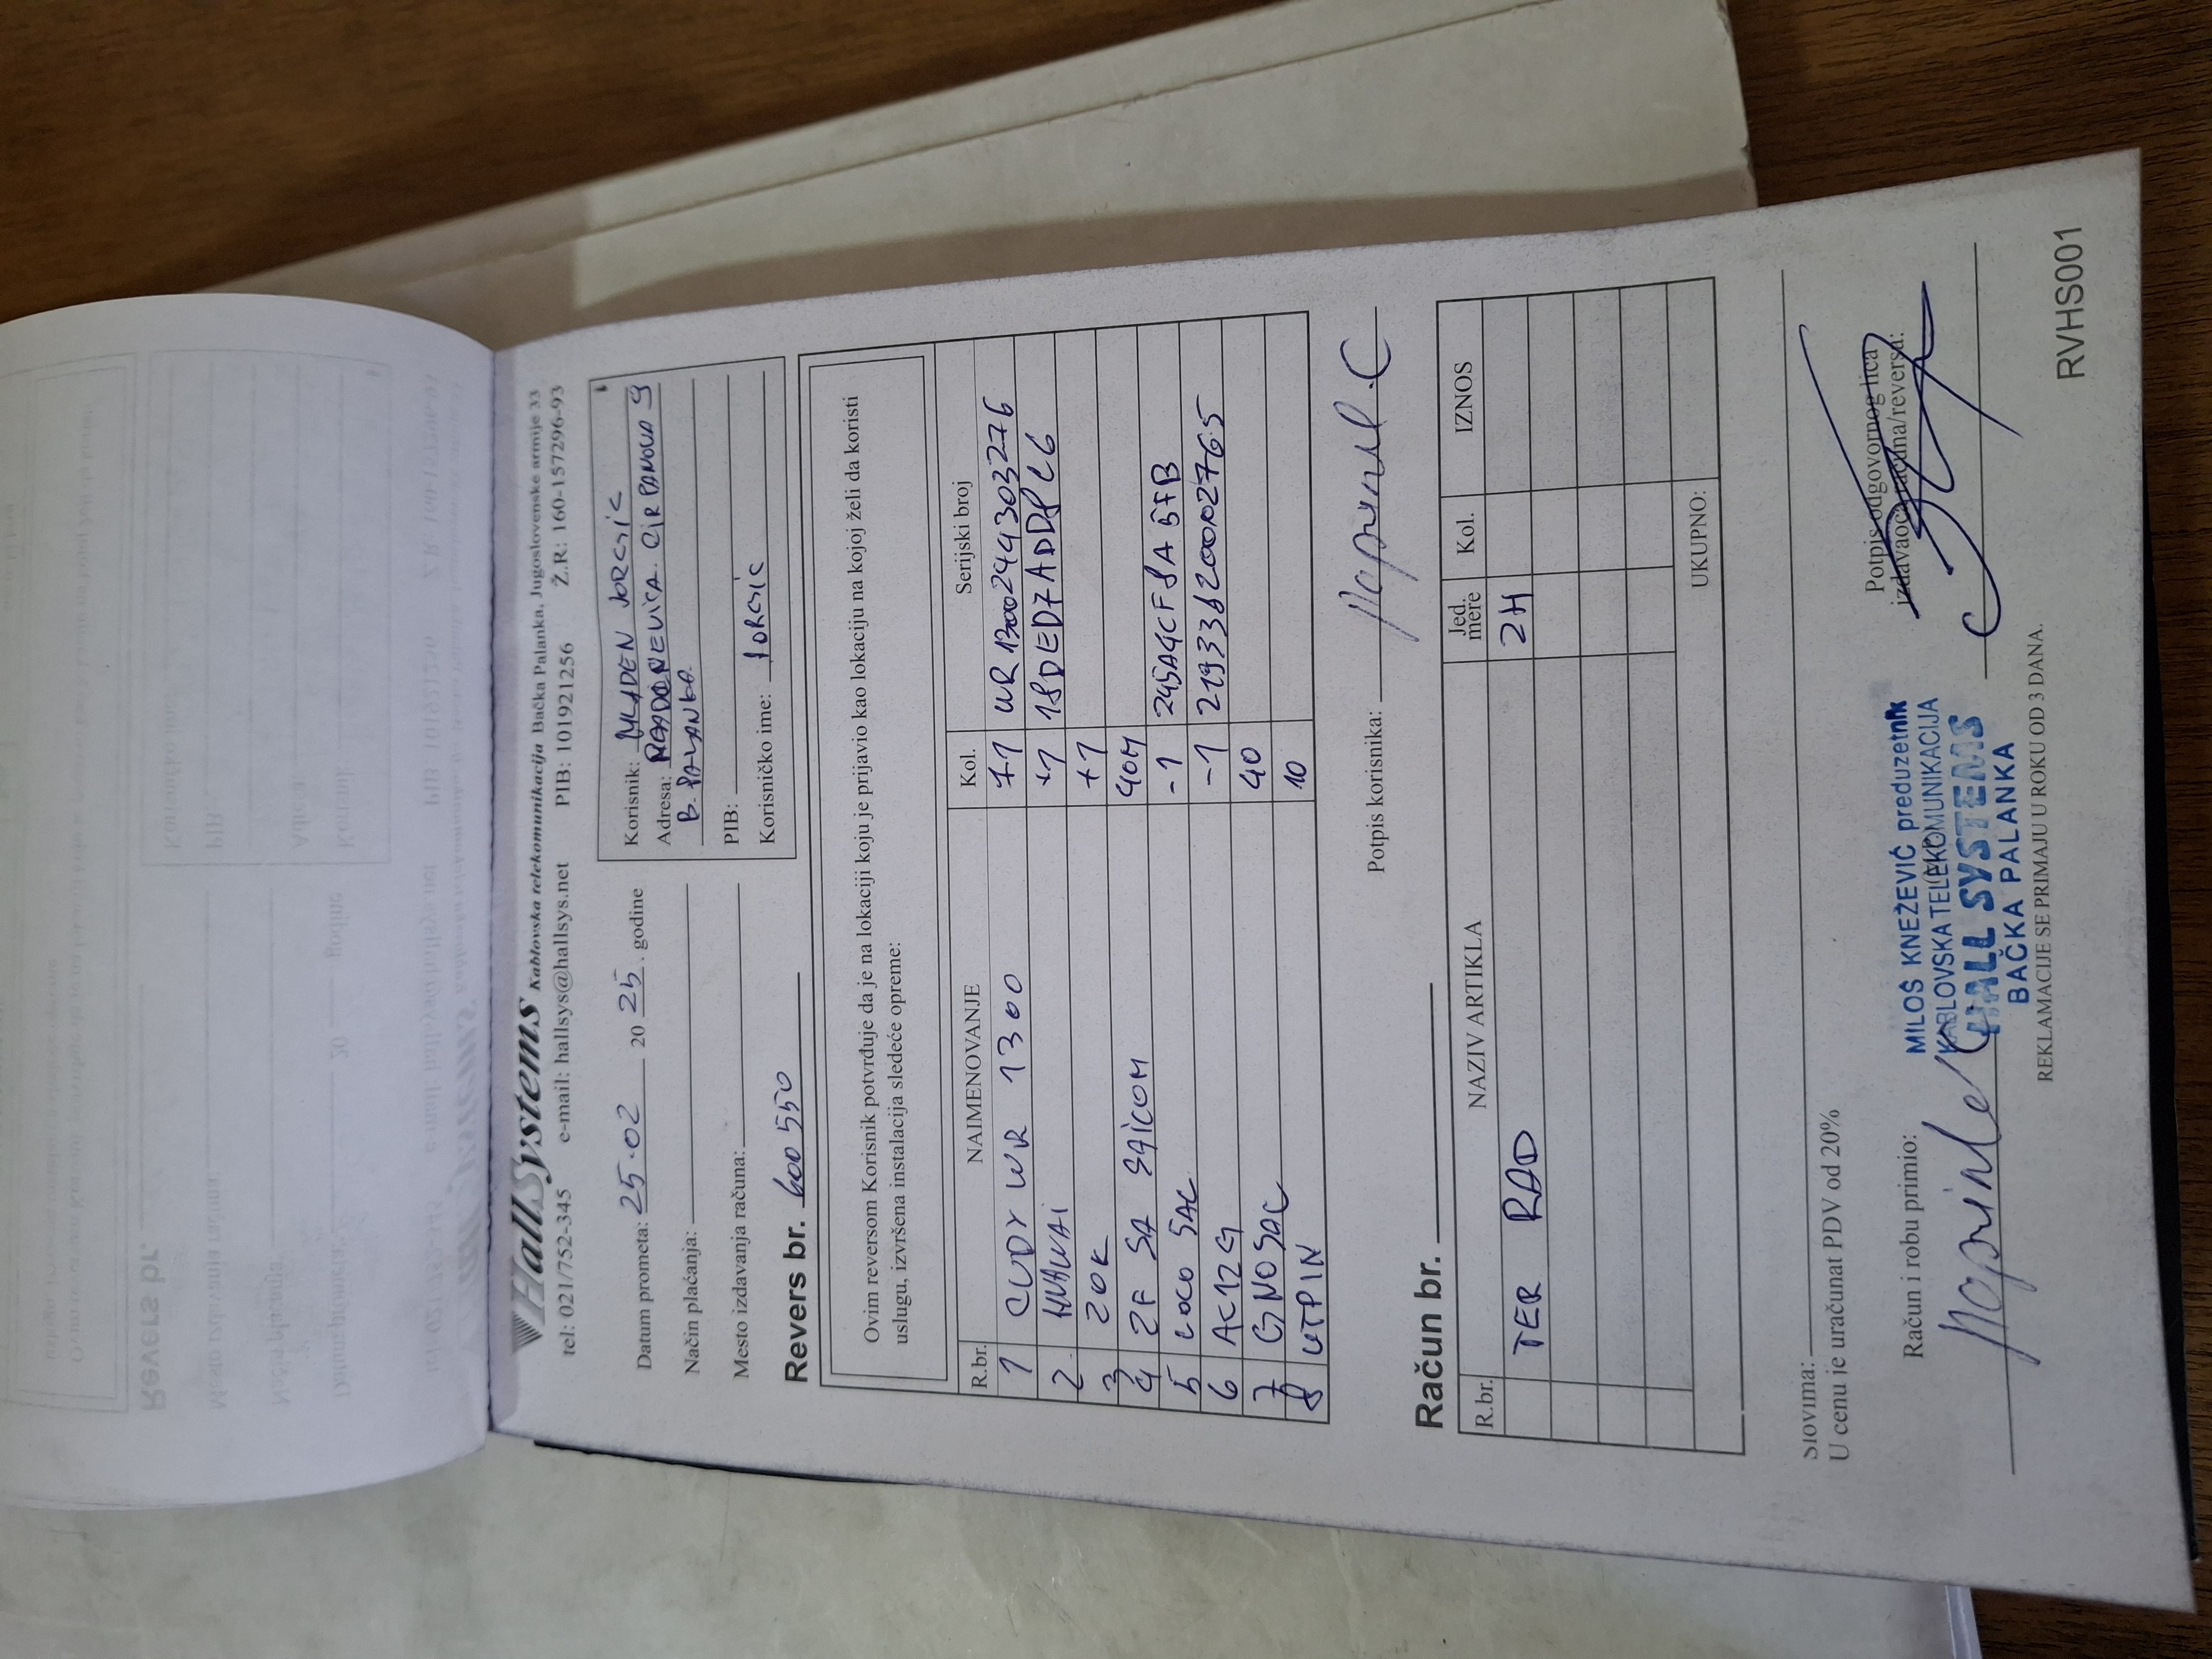 HallSystems Kablovska telekomunikacija Bačka Palanka, Jugoslovenske armije 33
tel: 021/752-345 e-mail: hallsys@hallsys.net PIB: 101921256 Ž.R: 160-157296-93
Datum prometa: 25.02 20 25. godine
Način plaćanja:
Mesto izdavanja računa:
Korisnik: MLADEN JORGIC
Adresa: CIRPANOVA 9
B. PALANKA
PIB:
Korisničko ime: JORGIC
Revers br. 600550
Ovim reversom Korisnik potvrđuje da je na lokaciji koju je prijavio kao lokaciju na kojoj želi da koristi
uslugu, izvršena instalacija sledeće opreme:
R.br. NAIMENOVANJE Kol. Serijski broj
1 CUDY WR 1300 +1 WR13000244303276
2 HUAWAI +1 18DED7ADD8C6
3 20K +1
4 2F SA SAICOM 40M
5 LOCO 5AC -1 245A4CF8A5FB
6 AC12G -1 21933862000102765
7 GNOSAC 40
8 UTPIN 10
Potpis korisnika:
Račun br.
R.br. NAZIV ARTIKLA Jed. mere Kol. IZNOS
TER RAD 2H
UKUPNO:
Slovima:
U cenu je uračunat PDV od 20%
Račun i robu primio:
Potpis odgovornog lica
izdavaoca računa/reversa:
MILOŠ KNEŽEVIĆ preduzetnik
KABLOVSKA TELEKOMUNIKACIJA
HALL SYSTEMS
BAČKA PALANKA
REKLAMACIJE SE PRIMAJU U ROKU OD 3 DANA.
RVHS001